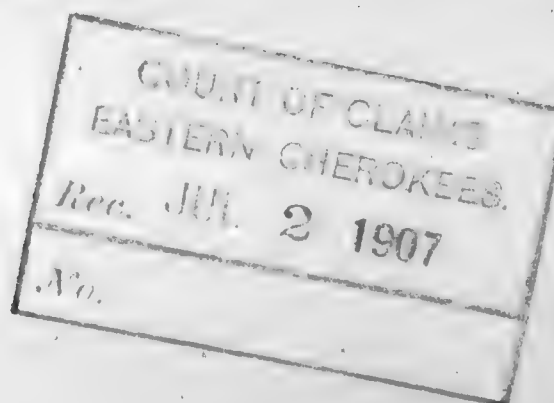 COURT OF CLAIMS
EASTERN CHEROKEES.
Rec. JUL 2 1907
No.